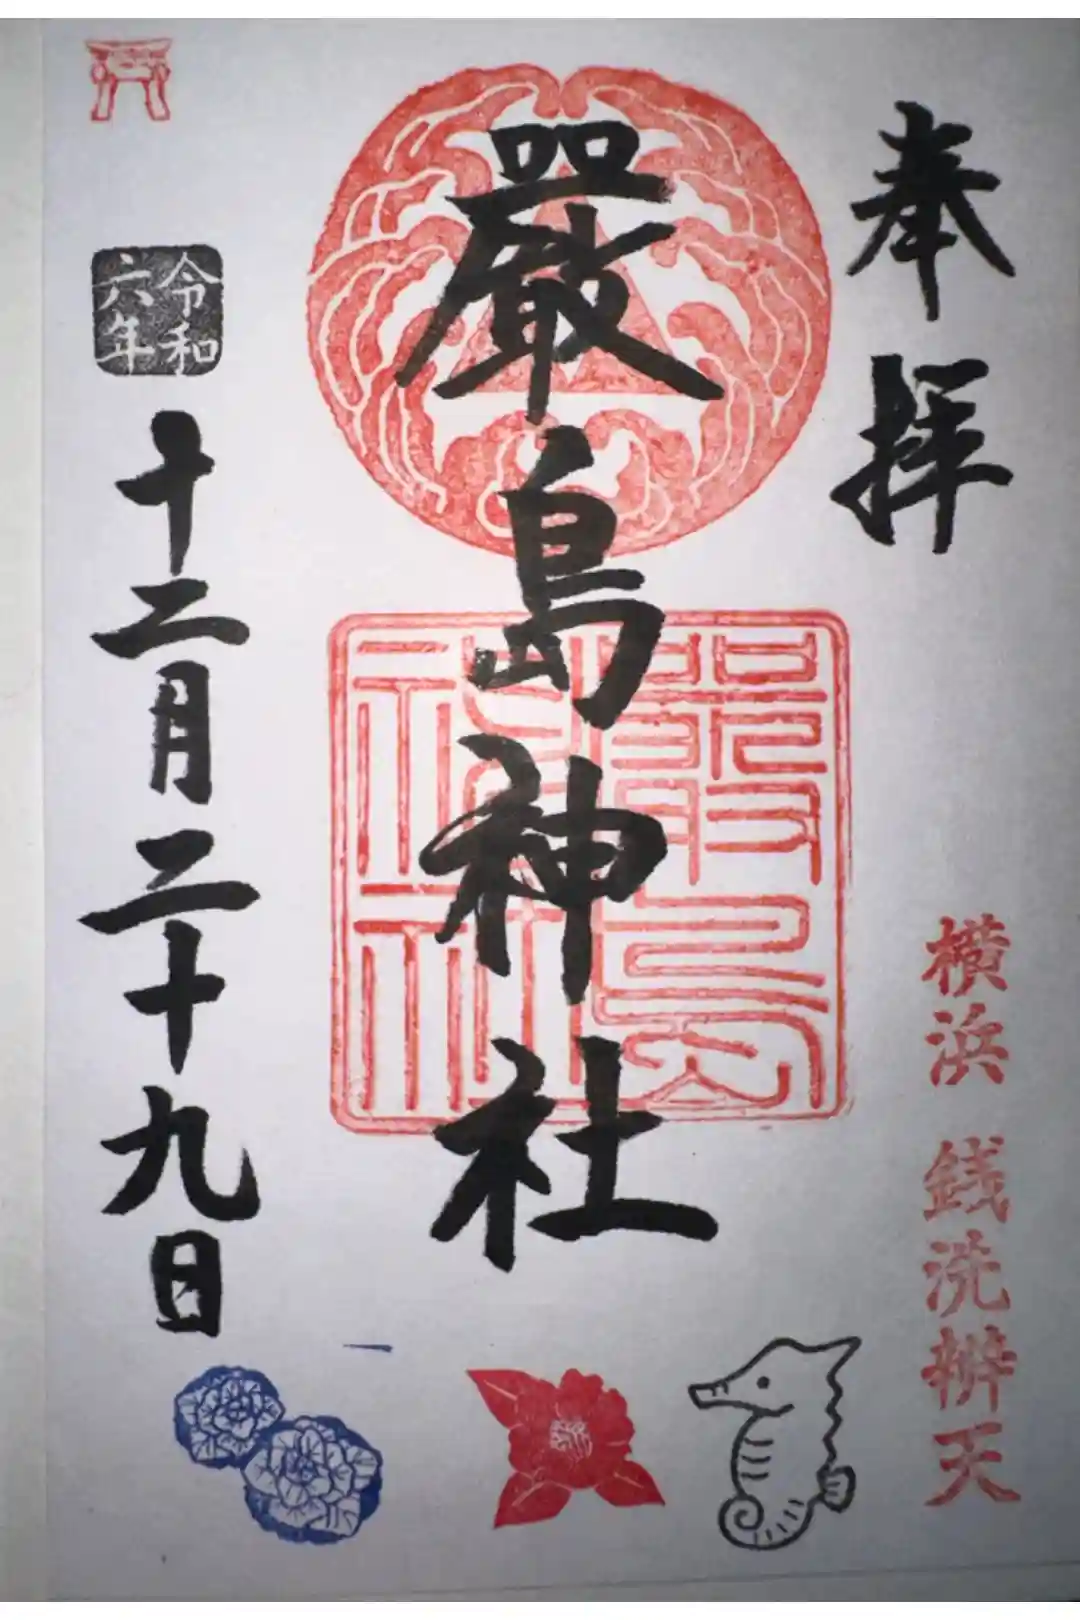 奉拝
横浜 銭洗辨天
厳島神社
厳島
神社
令和
六年
十二月二十九日